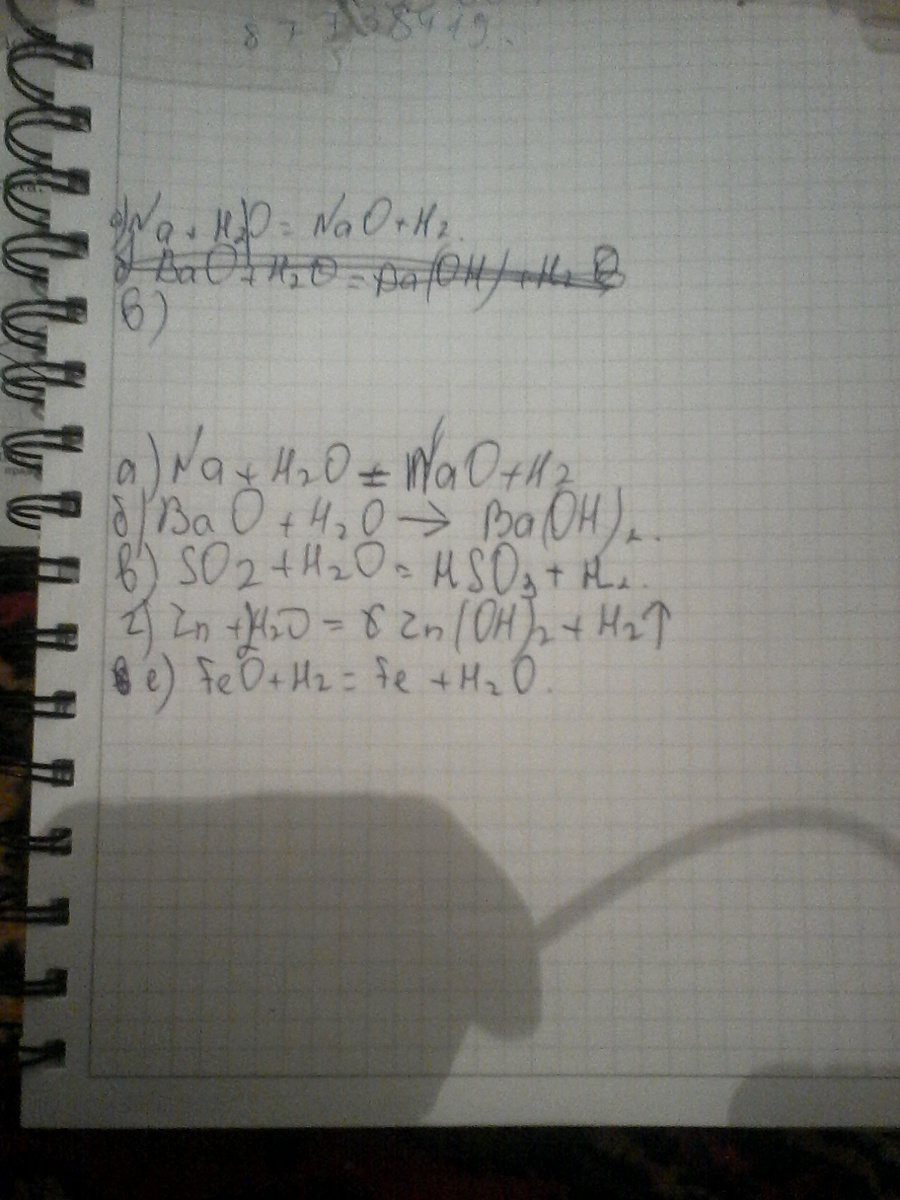 а) Na + H2O = NaO + H2.
б) BaO + H2O = Ba(OH) + H2O
в)
а) Na + H2O = NaO + H2
б) BaO + H2O → Ba(OH)2.
в) SO2 + H2O = HSO3 + H2.
г) Zn + H2O = Zn(OH)2 + H2↑
е) FeO + H2 = Fe + H2O.